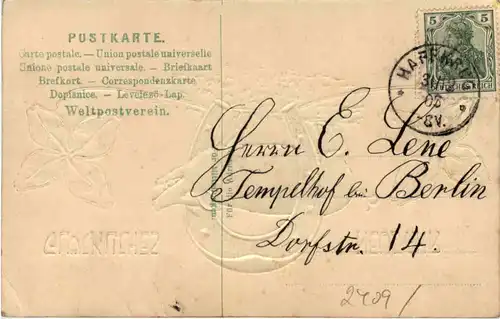 POSTKARTE.
Carte postale. — Union postale universelle
Unione postale universale. — Briefkaart
Brefkort. — Correspondenzkarte
Dopisnice. — Levelező-Lap.
Weltpostverein.
5 5
Herrn E. Lene
Tempelhof bei Berlin
Dorfstr. 14.
2409/